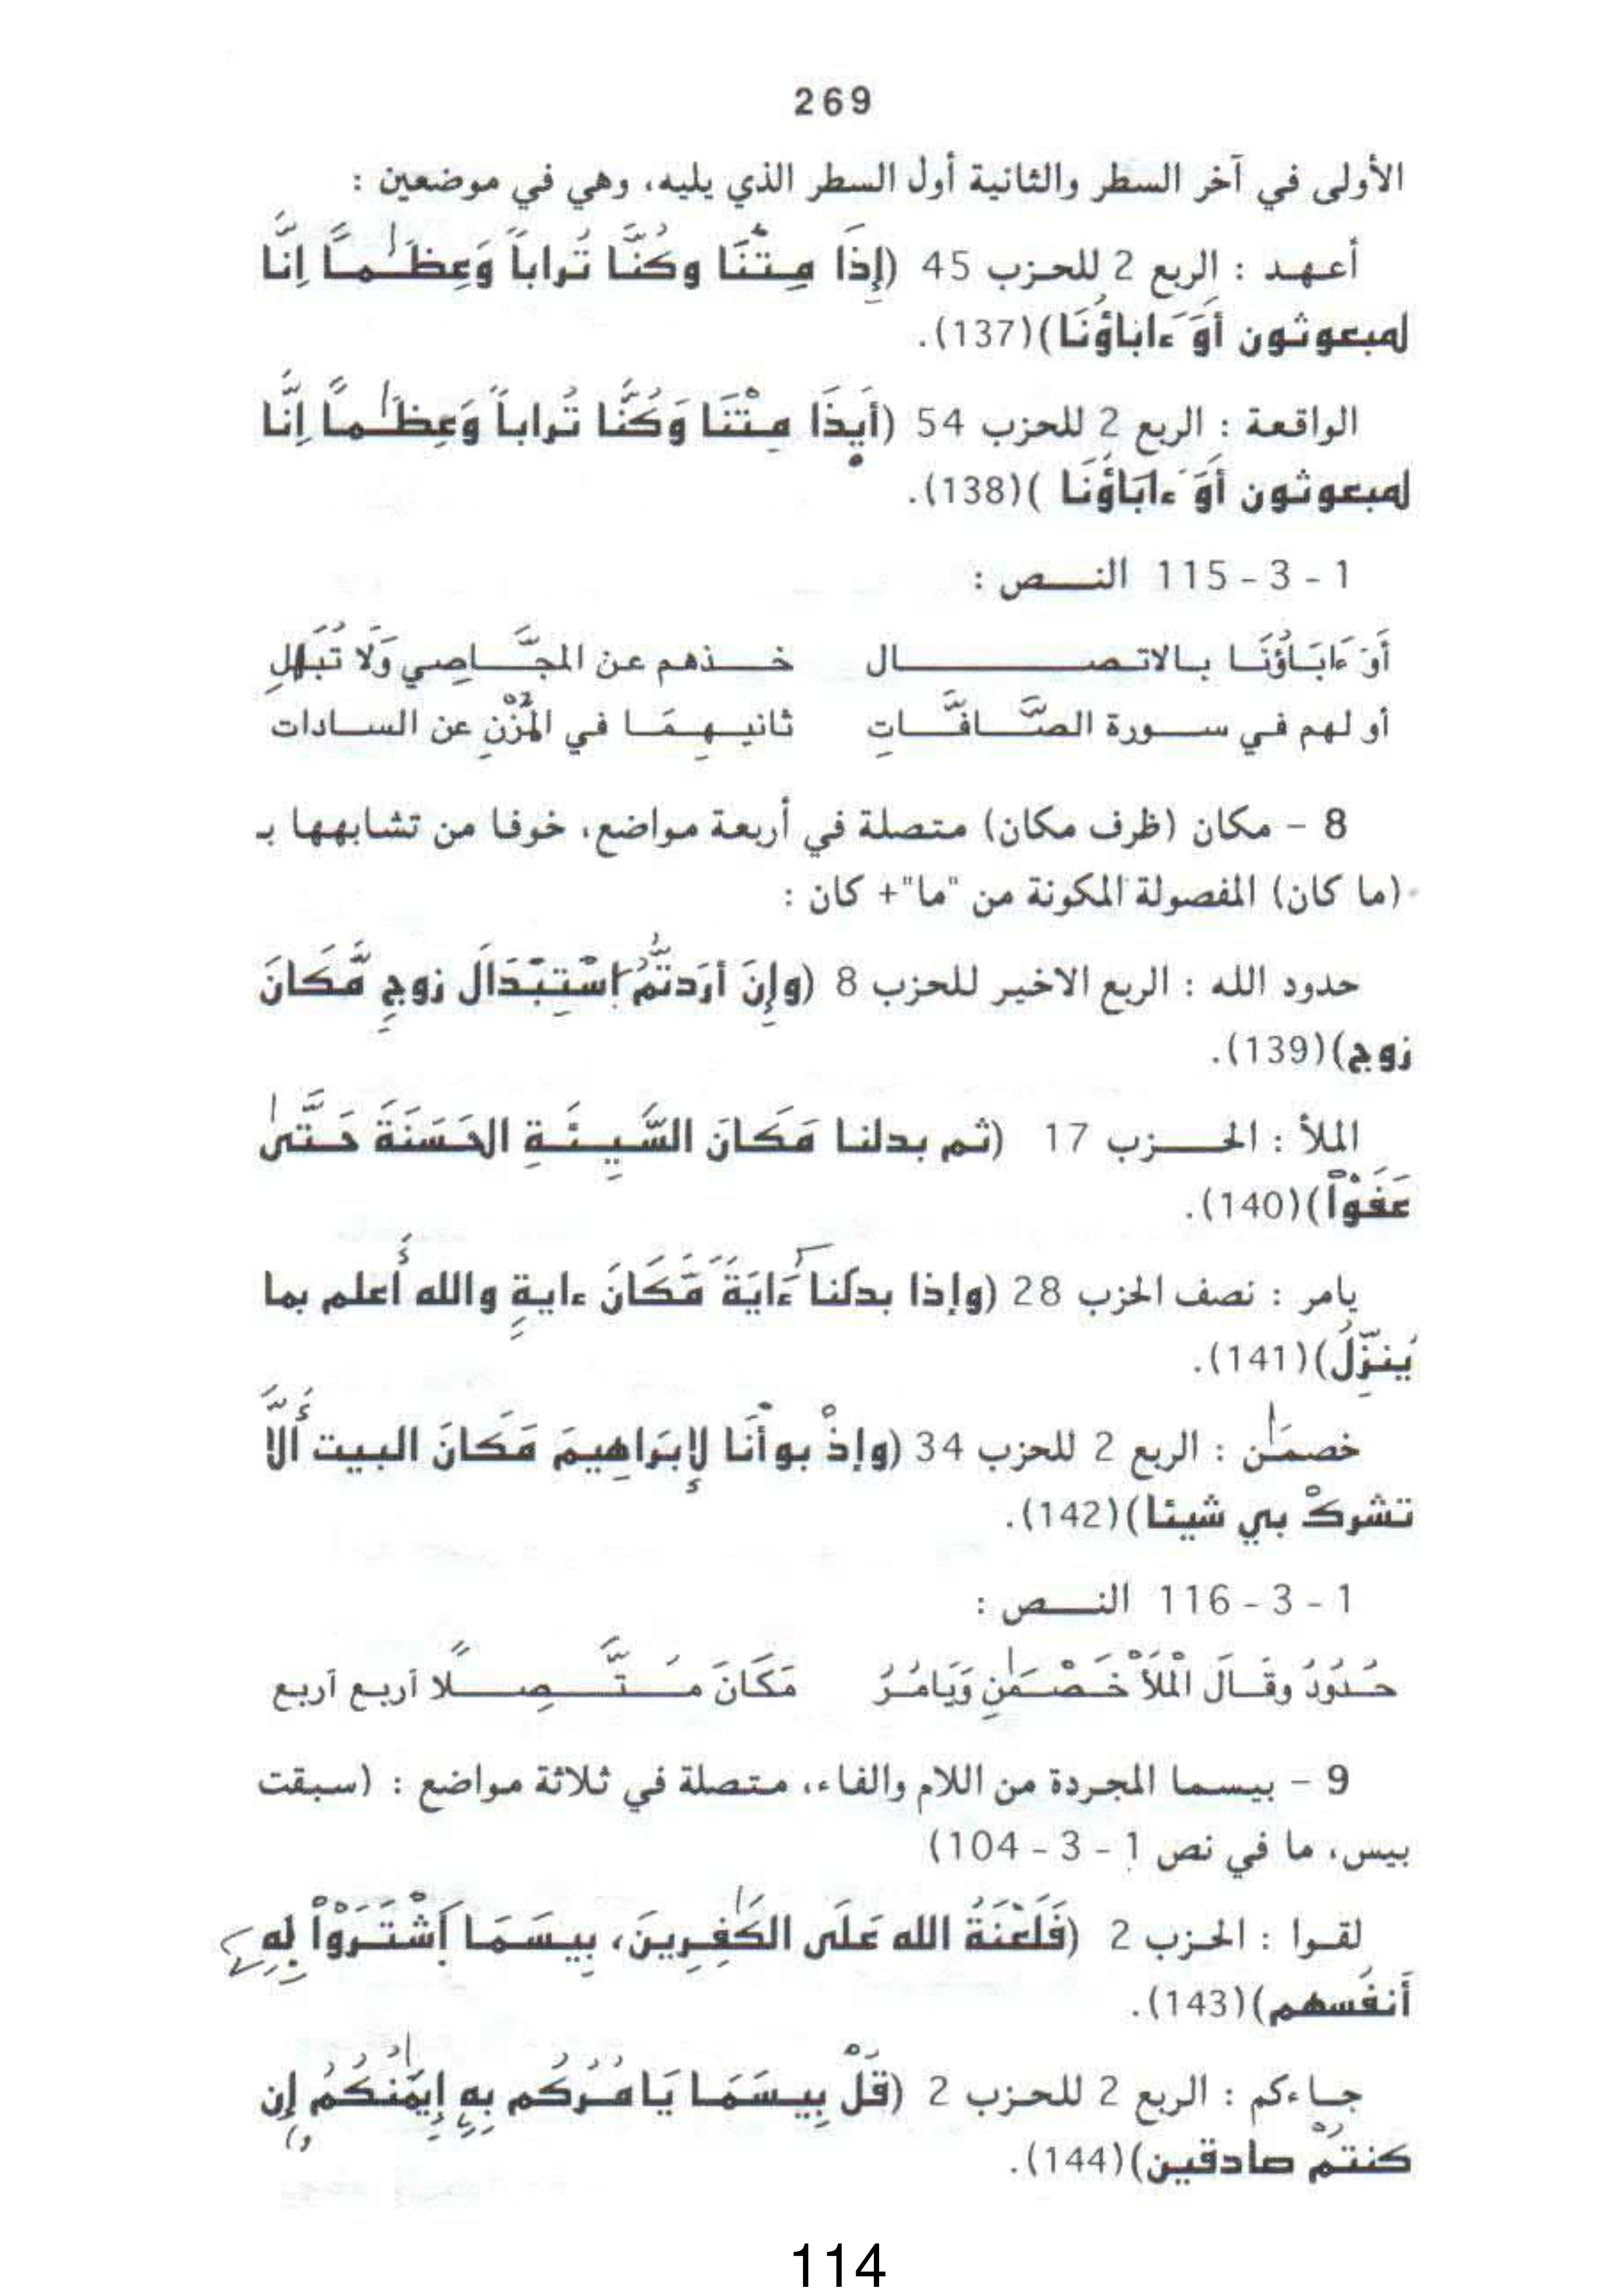 269
الأولى في آخر السطر والثانية أول السطر الذي يليه، وهي في موضعين :
أعهد : الربع 2 للحزب 45 (إِذَا مِتْنَا وكُنَّا تُراباً وَعِظَٰماً اِنَّا
لمبعوثون أَوَ ءاباؤُنَا)(137).
الواقعة : الربع 2 للحزب 54 (أَيِذَا مِتْنَا وَكُنَّا تُراباً وَعِظَٰماً اِنَّا
لمبعوثون أَوَ ءابَاؤُنَا )(138).
1 - 3 - 115 النص :
أَوَ ءَابَاؤُنَا بالاتصال خذهم عن المجَّاصِي وَلَا تُبَالِ
أو لهم في سورة الصَّافَّاتِ ثانيهِمَا في المُزْنِ عن السادات
8 - مكان (ظرف مكان) متصلة في أربعة مواضع، خوفا من تشابهها بـ
(ما كان) المفصولة المكونة من "ما"+ كان :
حدود الله : الربع الاخير للحزب 8 (وإِنَ اَرَدتُّمُ اسْتِبْدَالَ زوجٍ مَّكَانَ
زوج)(139).
الملأ : الحزب 17 (ثم بدلنا مَكَانَ السَّيِئَةِ الحَسَنَةَ حَتَّىٰ
عَفَوْاْ)(140).
يامر : نصف الحزب 28 (وإذا بدلنا ءَايَةً مَّكَانَ ءايةٍ والله أَعلم بما
يُنَزِّلُ)(141).
خصمَٰن : الربع 2 للحزب 34 (وإذْ بوأْنَا لِإبَراهِيمَ مَكَانَ البيت أَلاَّ
تشركْ بي شيئا)(142).
1 - 3 - 116 النص :
حُدُودُ وقَالَ الْمَلَأْ خَصْمَٰنِ وَيَامُرُ مَكَانَ مُتَّصِلًا أربع أربع
9 - بيسما المجردة من اللام والفاء، متصلة في ثلاثة مواضع : (سبقت
بيس، ما في نص 1 - 3 - 104)
لقوا : الحزب 2 (فَلَعْنَةُ الله عَلَى الكَٰفِرِينَ، بِيسَمَا اَشْتَرَوْاْ بِهِ
أَنفُسهم)(143).
جاءكم : الربع 2 للحزب 2 (قُلْ بِيسَمَا يَامُرُكُم بِهِ إِيمَٰنُكُمُ إِن
كنتُمْ صادقين)(144).
114